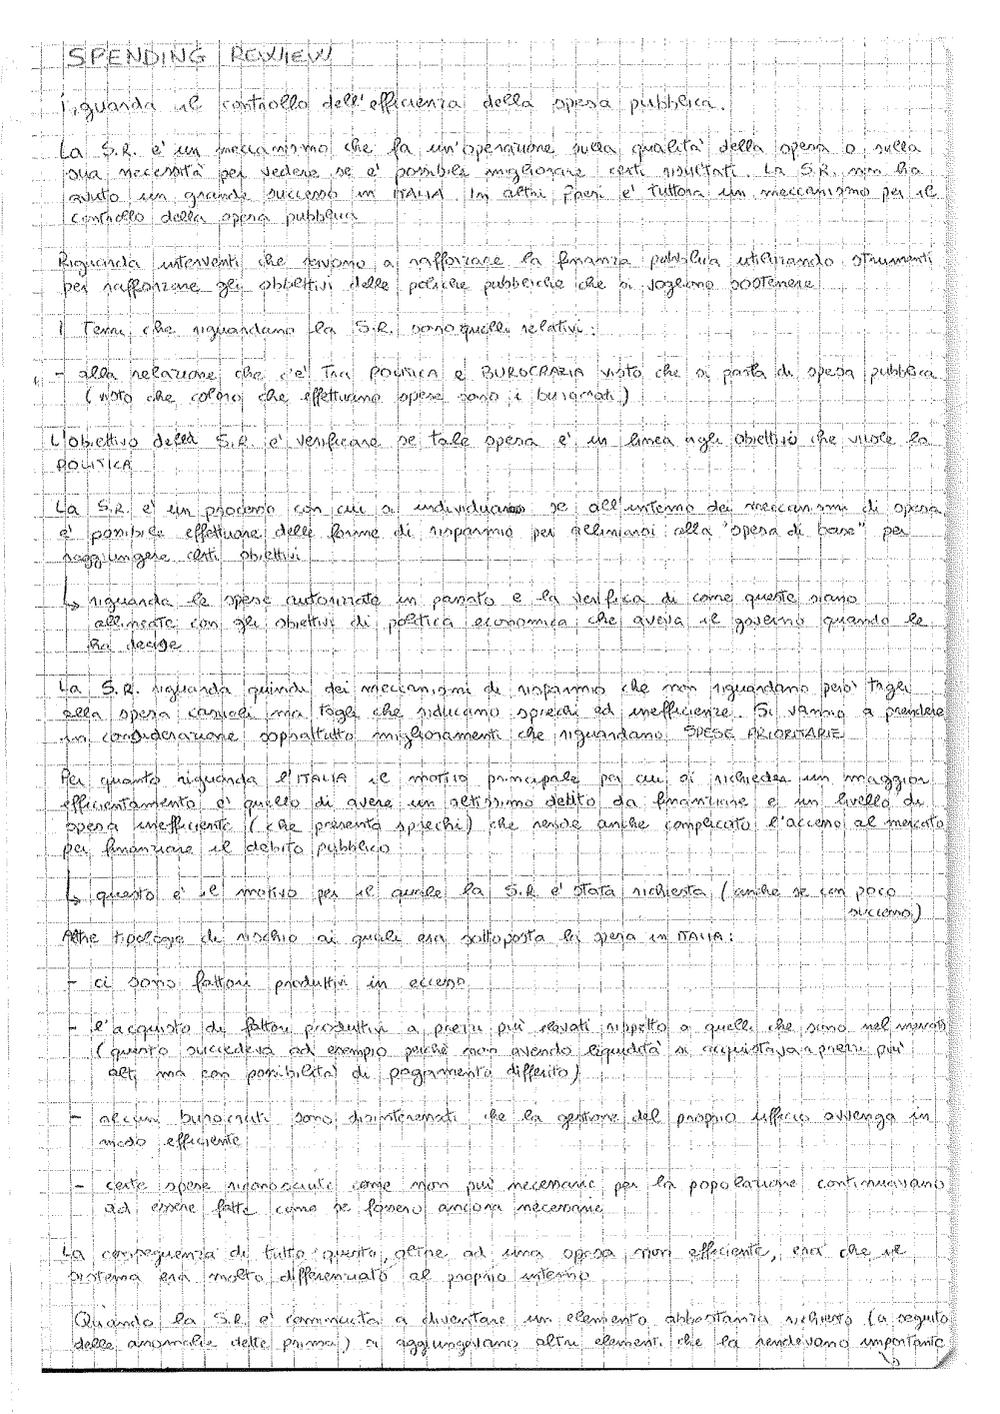 SPENDING REVIEW
riguarda il controllo dell'efficienza della spesa pubblica.
La S.R. e' un meccanismo che fa un'operazione sulla qualità della spesa o sulla
sua necessità per vedere se e' possibile migliorare certi risultati. La S.R. non ha
avuto un grande successo in ITALIA. In altri Paesi e' tuttora un meccanismo per il
controllo della spesa pubblica
Riguarda interventi che servono a rafforzare la finanza pubblica utilizzando strumenti
per rafforzare gli obbiettivi delle politiche pubbliche che si vogliono sostenere
I Temi che riguardano la S.R. sono quelli relativi:
- alla relazione che c'e' tra POLITICA e BUROCRAZIA visto che si parla di spesa pubblica
(visto che coloro che effettuano spese sono i burocrati)
L'obiettivo della S.R. e' verificare se tale spesa e' in linea agli obiettivi che vuole la
POLITICA
La S.R. e' un processo con cui si individuano se all'interno dei meccanismi di spesa
e' possibile effettuare delle forme di risparmio per allinearsi alla "spesa di base" per
raggiungere certi obiettivi
↳ riguarda le spese autorizzate in passato e la verifica di come queste siano
allineate con gli obiettivi di politica economica che aveva il governo quando le
ha decise
La S.R. riguarda quindi dei meccanismi di risparmio che non riguardano però tagli
alla spesa casuali ma tagli che riducano sprechi ed inefficienze. Si vanno a prendere
in considerazione soprattutto miglioramenti che riguardano SPESE PRIORITARIE
Per quanto riguarda l'ITALIA il motivo principale per cui si richiedea un maggior
efficientamento e' quello di avere un altissimo debito da finanziare e un livello di
spesa inefficiente (che presenta sprechi) che rende anche complicato l'accesso al mercato
per finanziare il debito pubblico
↳ questo è il motivo per il quale la S.R e' stata richiesta (anche se con poco
successo)
Altre tipologie di rischio ai quali era sottoposta la spesa in ITALIA:
- ci sono fattori produttivi in eccesso
- l'acquisto di fattori produttivi a prezzi più elevati rispetto a quelli che sono nel mercato
(questo succedeva ad esempio perchè non avendo liquidità si acquistava a prezzi più
alti ma con possibilita' di pagamento differito)
- alcuni burocrati sono disinteressati che la gestione del proprio ufficio avvenga in
modo efficiente
- certe spese riconosciute come non più necessarie per la popolazione continuavano
ad essere fatte come se fossero ancora necessarie
La conseguenza di tutto questo, oltre ad una spesa non efficiente, era che il
sistema era molto differenziato al proprio interno
Quando la S.R. e' cominciata a diventare un elemento abbastanza richiesto (a seguito
delle anomalie dette prima) si aggiungevano altri elementi che la rendevano importante